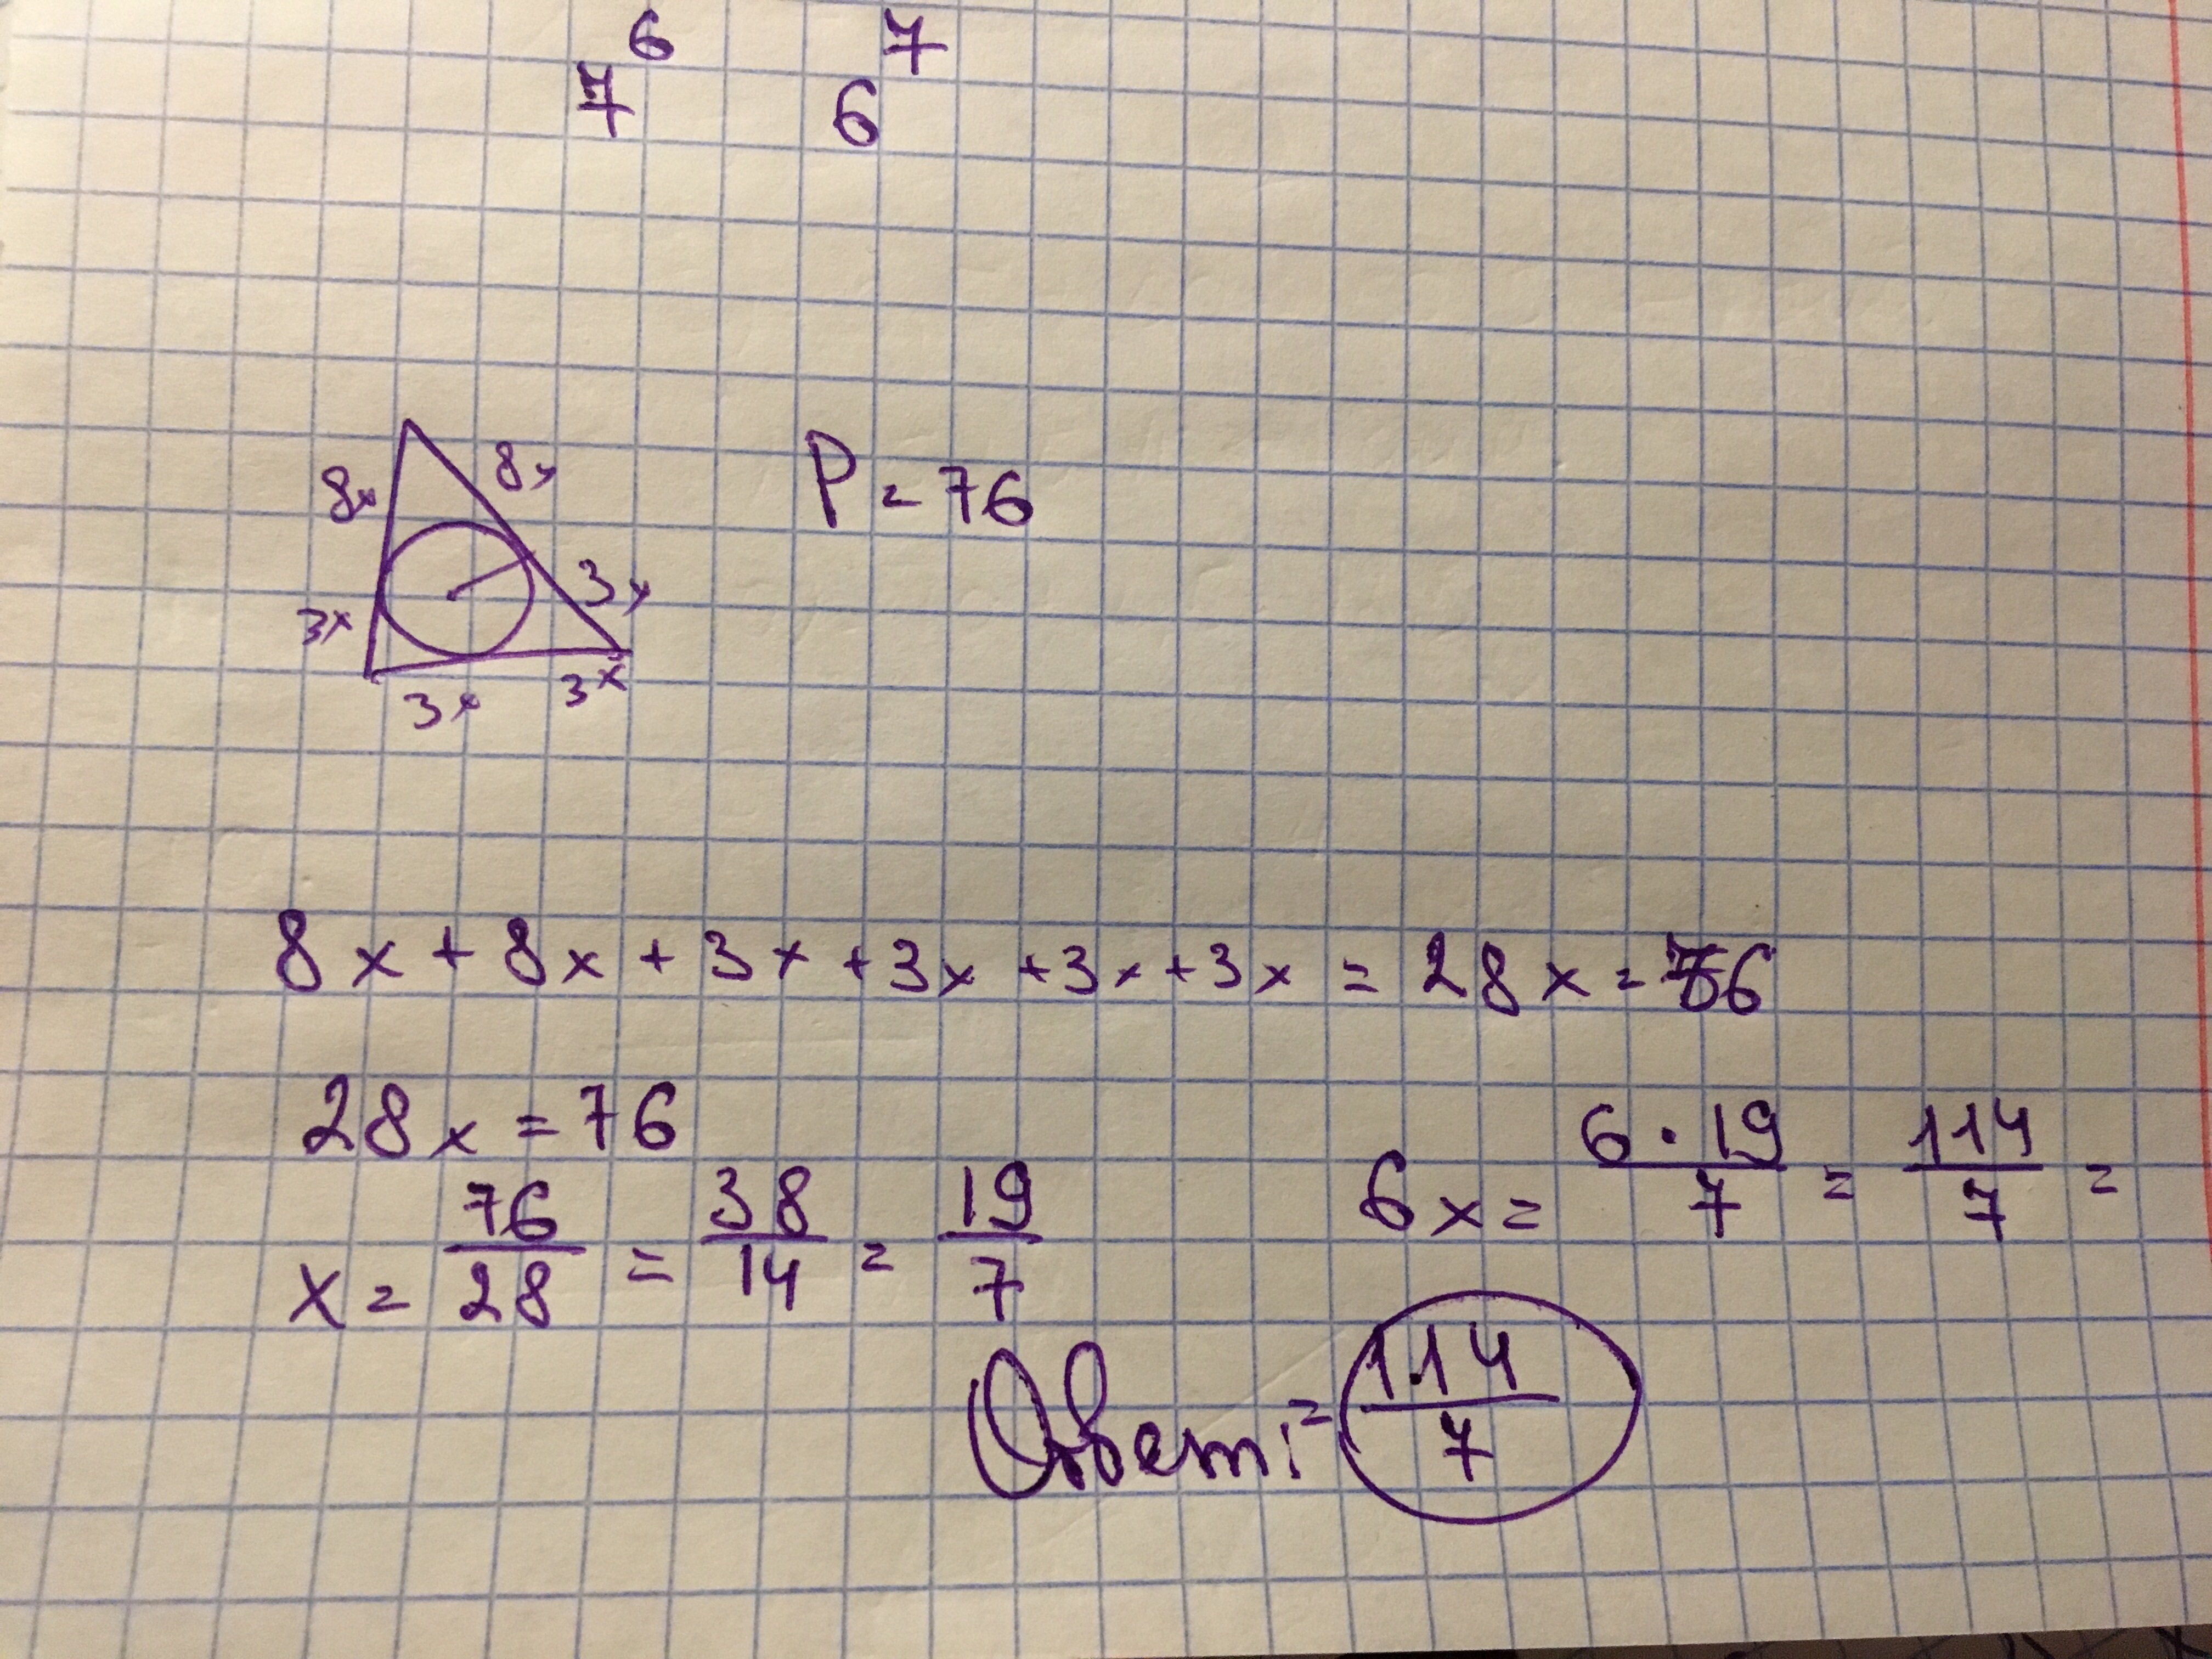 7^6 6^7
8x 8x
P = 76
3x 3x
3x 3x
8x + 8x + 3x + 3x + 3x + 3x = 28x = 76
28x = 76
x = 76/28 = 38/14 = 19/7
6x = 6·19/7 = 114/7 =
Ответ: = 114/7